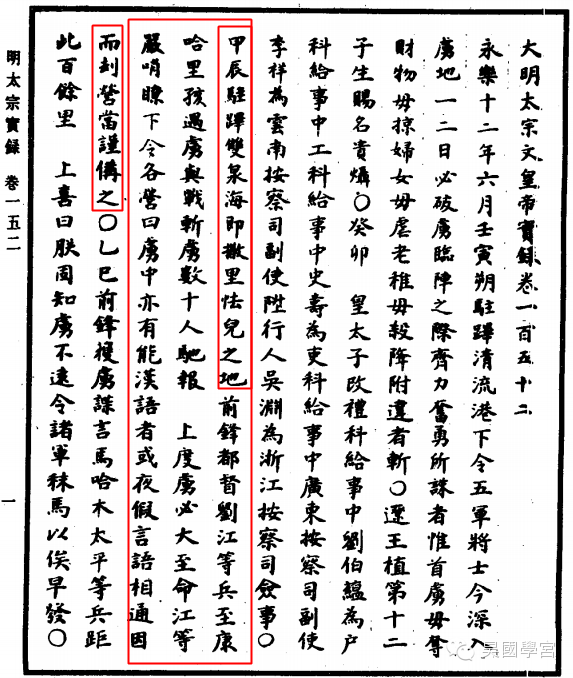 大明太宗文皇帝實錄卷一百五十二
永樂十二年六月壬寅朔駐蹕清流港下令五軍將士今深入
虜地一二日必破虜臨陣之際齊力奮勇所誅者惟首虜毋奪
財物毋掠婦女毋虐老稚毋殺降附違者斬〇遼王植第十二
子生賜名貴㸅〇癸卯 皇太子改禮科給事中劉伯龥為戶
科給事中工科給事中史壽為吏科給事中廣東按察司副使
李祥為雲南按察司副使陞行人吳淵為浙江按察司僉事〇
甲辰駐蹕雙泉海即撒里怯兒之地前鋒都督劉江等兵至康
哈里孩遇虜與戰斬虜數十人馳報 上度虜必大至命江等
嚴哨瞭下令各營曰虜中亦有能漢語者或夜假言語相通因
而刦營當謹備之〇乙巳前鋒獲虜諜言馬哈木太平等兵距
此百餘里 上喜曰朕固知虜不遠令諸軍秣馬以俟早發〇
明太宗實錄 卷一五二
一
昊國學宮